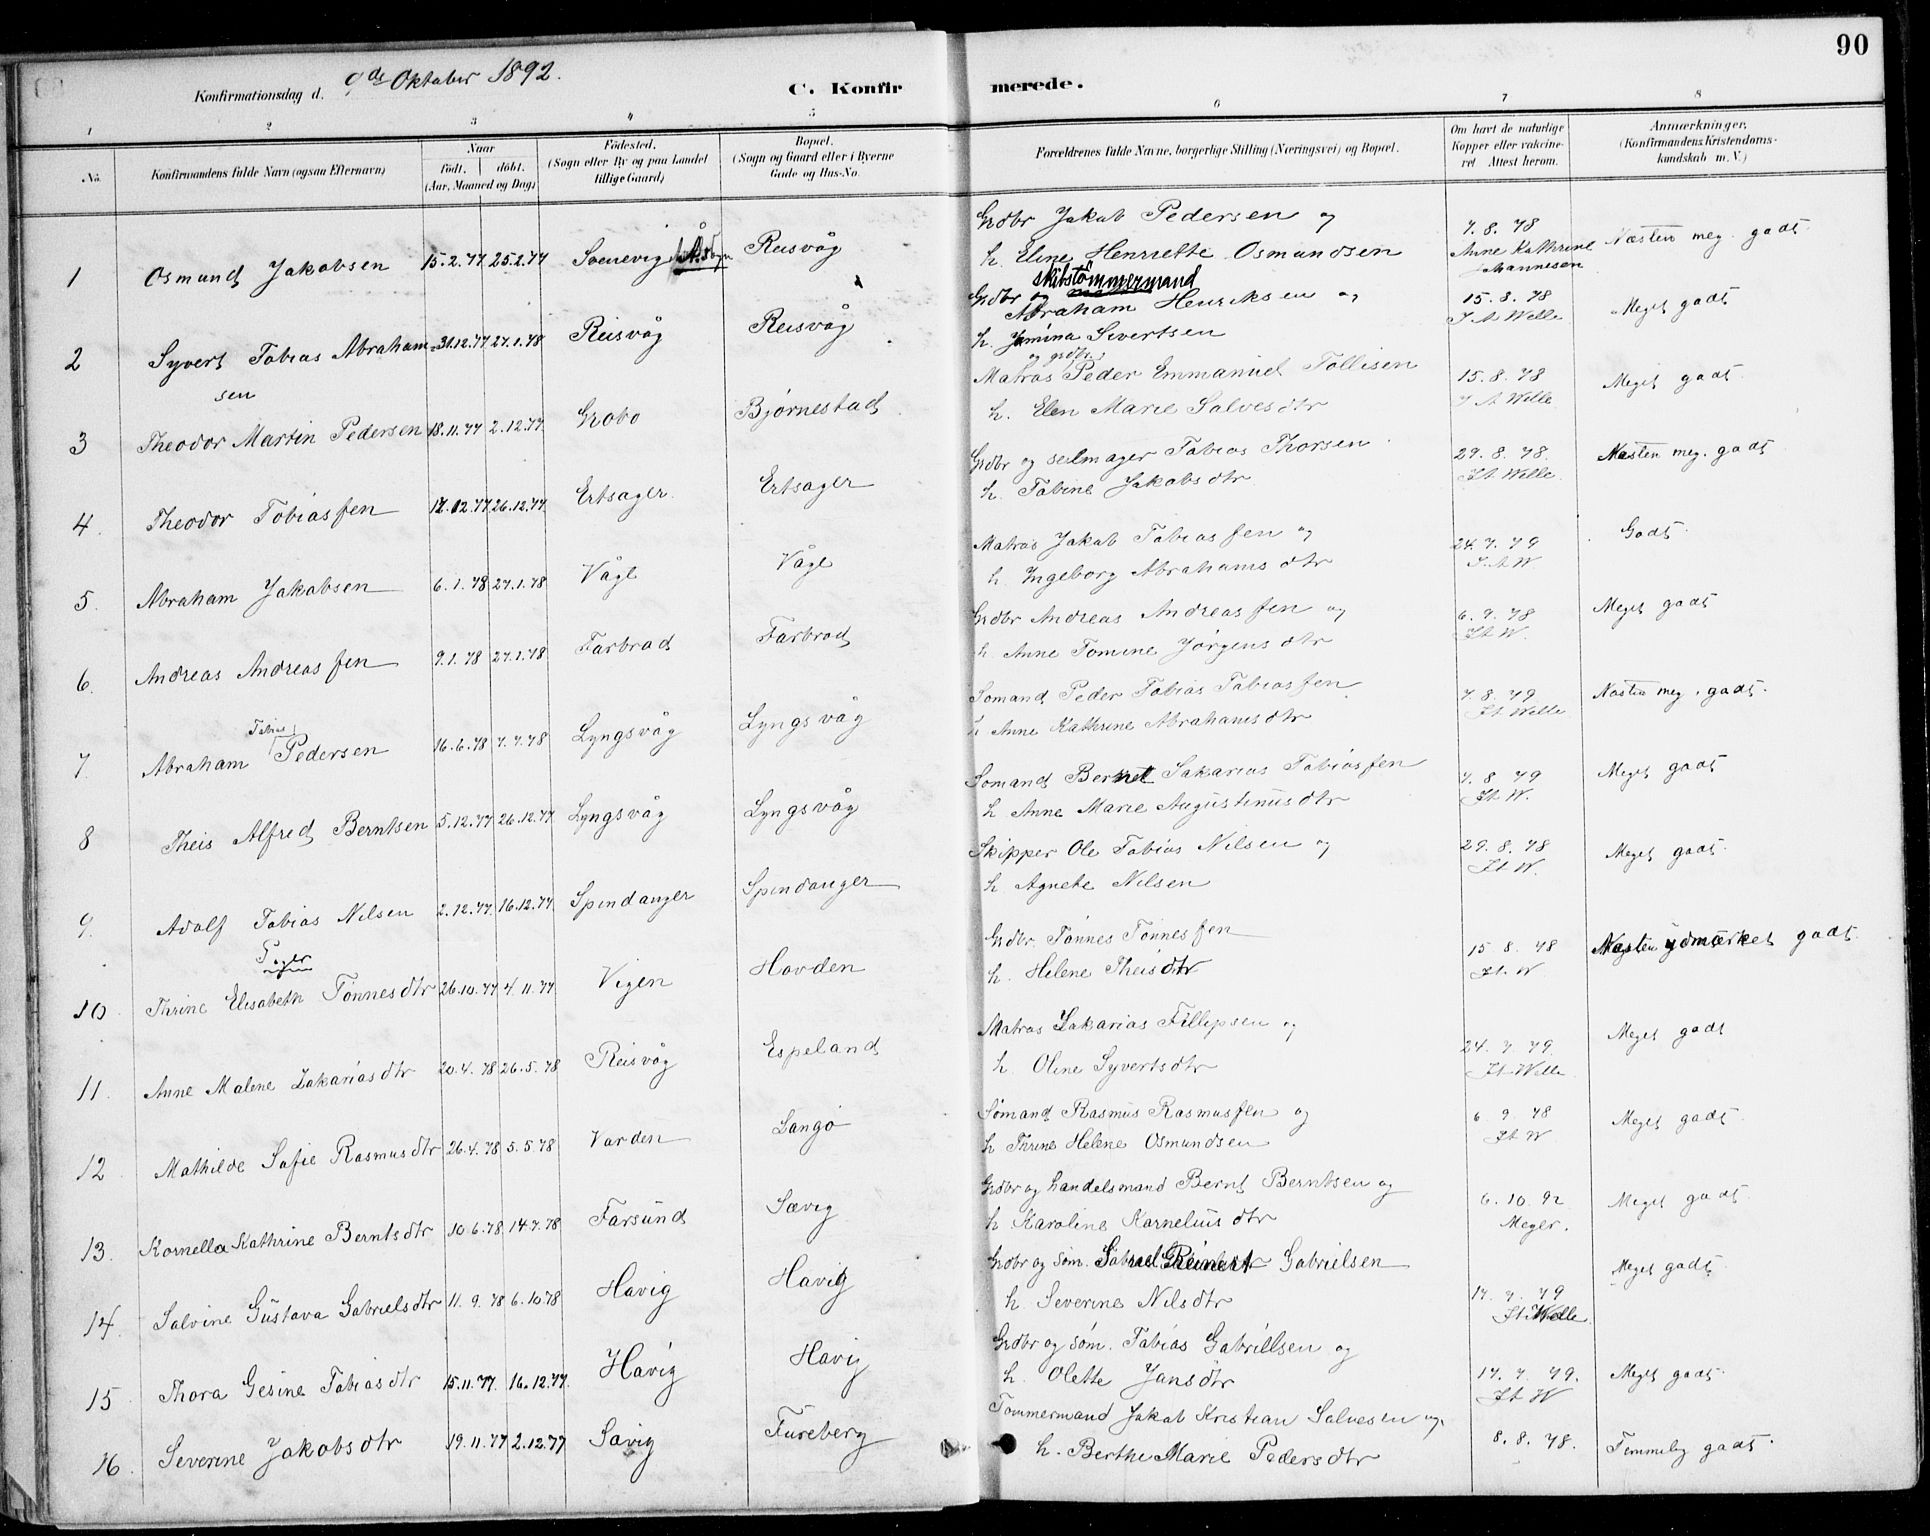 90
Konfirmationsdag d. 9de Oktober 1892.
C. Konfirmerede.
1 2 3 4 5 6 7 8
No. Konfirmandens fulde Navn (ogsaa Efternavn) Naar født. døbt. (Aar, Maaned og Dag) Fødested. (Sogn eller By og paa Landet tillige Gaard) Bopæl. (Sogn og Gaard eller i Byerne Gade og Hus-No. Forældrenes fulde Navne, borgerlige Stilling (Næringsvei) og Bopæl. Om havt de naturlige Kopper eller vakcineret Attest herom. Anmærkninger. (Konfirmandens Kristendomskundskab m. V.)
1 Osmund Jakobsen 15.2.77 25.2.77 Svenevig Reisvåg Grdbr Jakob Pedersen og h. Eline Henriette Osmundsen 7.8.78 Anne Kathrine Johannesen Næsten meg. godt
2 Syvert Tobias Abrahamsen 31.12.77 27.1.78 Reisvåg Reisvåg Grdbr og skibstømmermand Abraham Henriksen og h. Jamina Sivertsen 15.8.78 J A Welle Meget godt
3 Theodor Martin Pedersen 18.11.77 2.12.77 Grobo Bjørnestad Matros og grdbr Peder Emmanuel Tollisen h. Elen Marie Salvesdtr 15.8.78 J A Welle Meget godt
4. Theodor Tobiassen 12.12.77 26.12.77 Ertsager Ertsager Grdbr og seilmager Tobias Thorsen h. Tobine Jakobsdtr 29.8.78 J A Welle Næsten meg. godt
5. Abraham Jakobsen 6.1.78 27.1.78 Våge Våge Matros Jakob Tobiassen og h Ingeborg Abrahamsdtr 24.7.79 J A W Godt
6. Andreas Andreassen 9.1.78 27.1.78 Farbrod Farbrod Grdbr Andreas Andreassen og h. Anne Tomine Jørgensdtr 6.9.78 J A W. Meget godt
7. Abraham Tobias Pedersen 16.6.78 7.7.78 Lyngsvåg Lyngsvåg Sømand Peder Tobias Tobiassen h Anne Kathrine Abrahamsdtr 7.8.79 J A Welle Næsten meg. godt.
8 Theis Alfred Berntsen 5.12.77 26.12.77 Lyngsvåg Lyngsvåg Sømand Bernt Sakarias Tobiassen h Anne Marie Augustinusdtr 7.8.79 J A W. Meget godt
9. Adolf Tobias Nilsen 2.12.77 16.12.77 Spindanger Spindanger Skipper Ole Tobias Nilsen og h Agnete Nilsen 29.8.78 J A W. Meget godt.
10 Thrine Elisabeth Tønnesdtr 26.10.77 4.11.77 Vigen Havden Grdbr. Tønnes Tønnessen h. Helene Theisdtr 15.8.78 J A W Næsten udmærket godt
11. Anne Malene Zakariasdtr 20.4.78 26.5.78 Reisvåg Espeland Matros Zakarias Fillipsen og h. Oline Syvertsdtr 24.7.79. J A Welle Meget godt
12 Mathilde Sofie Rasmusdtr 26.4.78 5.5.78 Varden Langø Sømand Rasmus Rasmussen og h Thrine Helene Osmundsen 6.9.78 J A W Meget godt
13. Kornelia Kathrine Berntsdtr 10.6.78 14.7.78 Farsund Sævig Grdbr og handelsmand Bernt Berntsen og h Karoline Korneliusdtr 6.10.92 Meyer. Meget godt
14. Salvine Gustava Gabrielsdtr 11.9.78 6.10.78 Havig Havig Grdbr og søm. Gabriel Reinert Gabrielsen h. Severine Nilsdtr 17.7.79 J A Welle Meget godt
15 Thora Gesine Tobiasdtr 15.11.77. 16.12.77. Havig Havig Grdbr og søm. Tobias Gabrielsen og h. Olette Jansdtr 17.7.79. J A W Meget godt
16. Severine Jakobsdtr 19.11.77 2.12.77 Sævig Fureberg Tømmermand Jakob Kristian Salvesen og h. Berthe Marie Pedersdtr 8.8.78. Temmelig godt